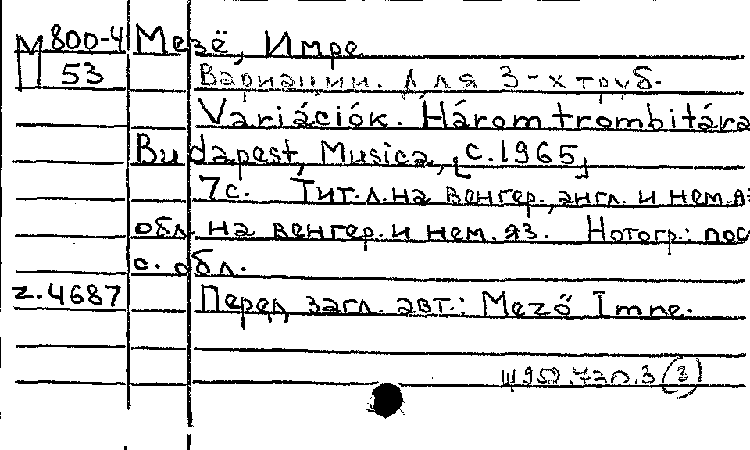 М 800-4 Мезё, Имре
53 Вариации. Для 3-х труб.
Variációk. Három trombitára
Budapest, Musica, [c.1965]
7с. Тит.л. на венгер., англ. и нем.яз
обл. на венгер. и нем. яз. Нотогр.: пос
с. обл.
z.4687 Перед загл. авт.: Mező Imre.
Ш952.730.3 (3)